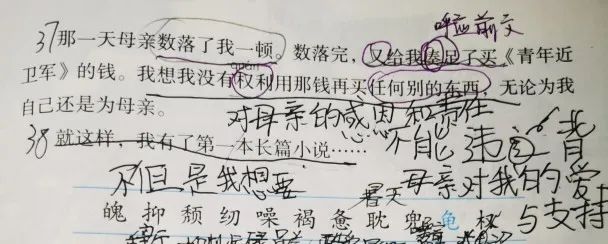 呼应前文
37那一天母亲数落了我一顿。数落完，又给我凑足了买《青年近
卫军》的钱。我想我没有权利用那钱再买任何别的东西，无论为我
quán
自己还是为母亲。
对母亲的感恩和责任
38就这样，我有了第一本长篇小说……
不能违背
不但是我想要
母亲对我的爱
与支持
暑天
魄 抑 颓 纫 噪 褐 惫 耽 兜 龟 权